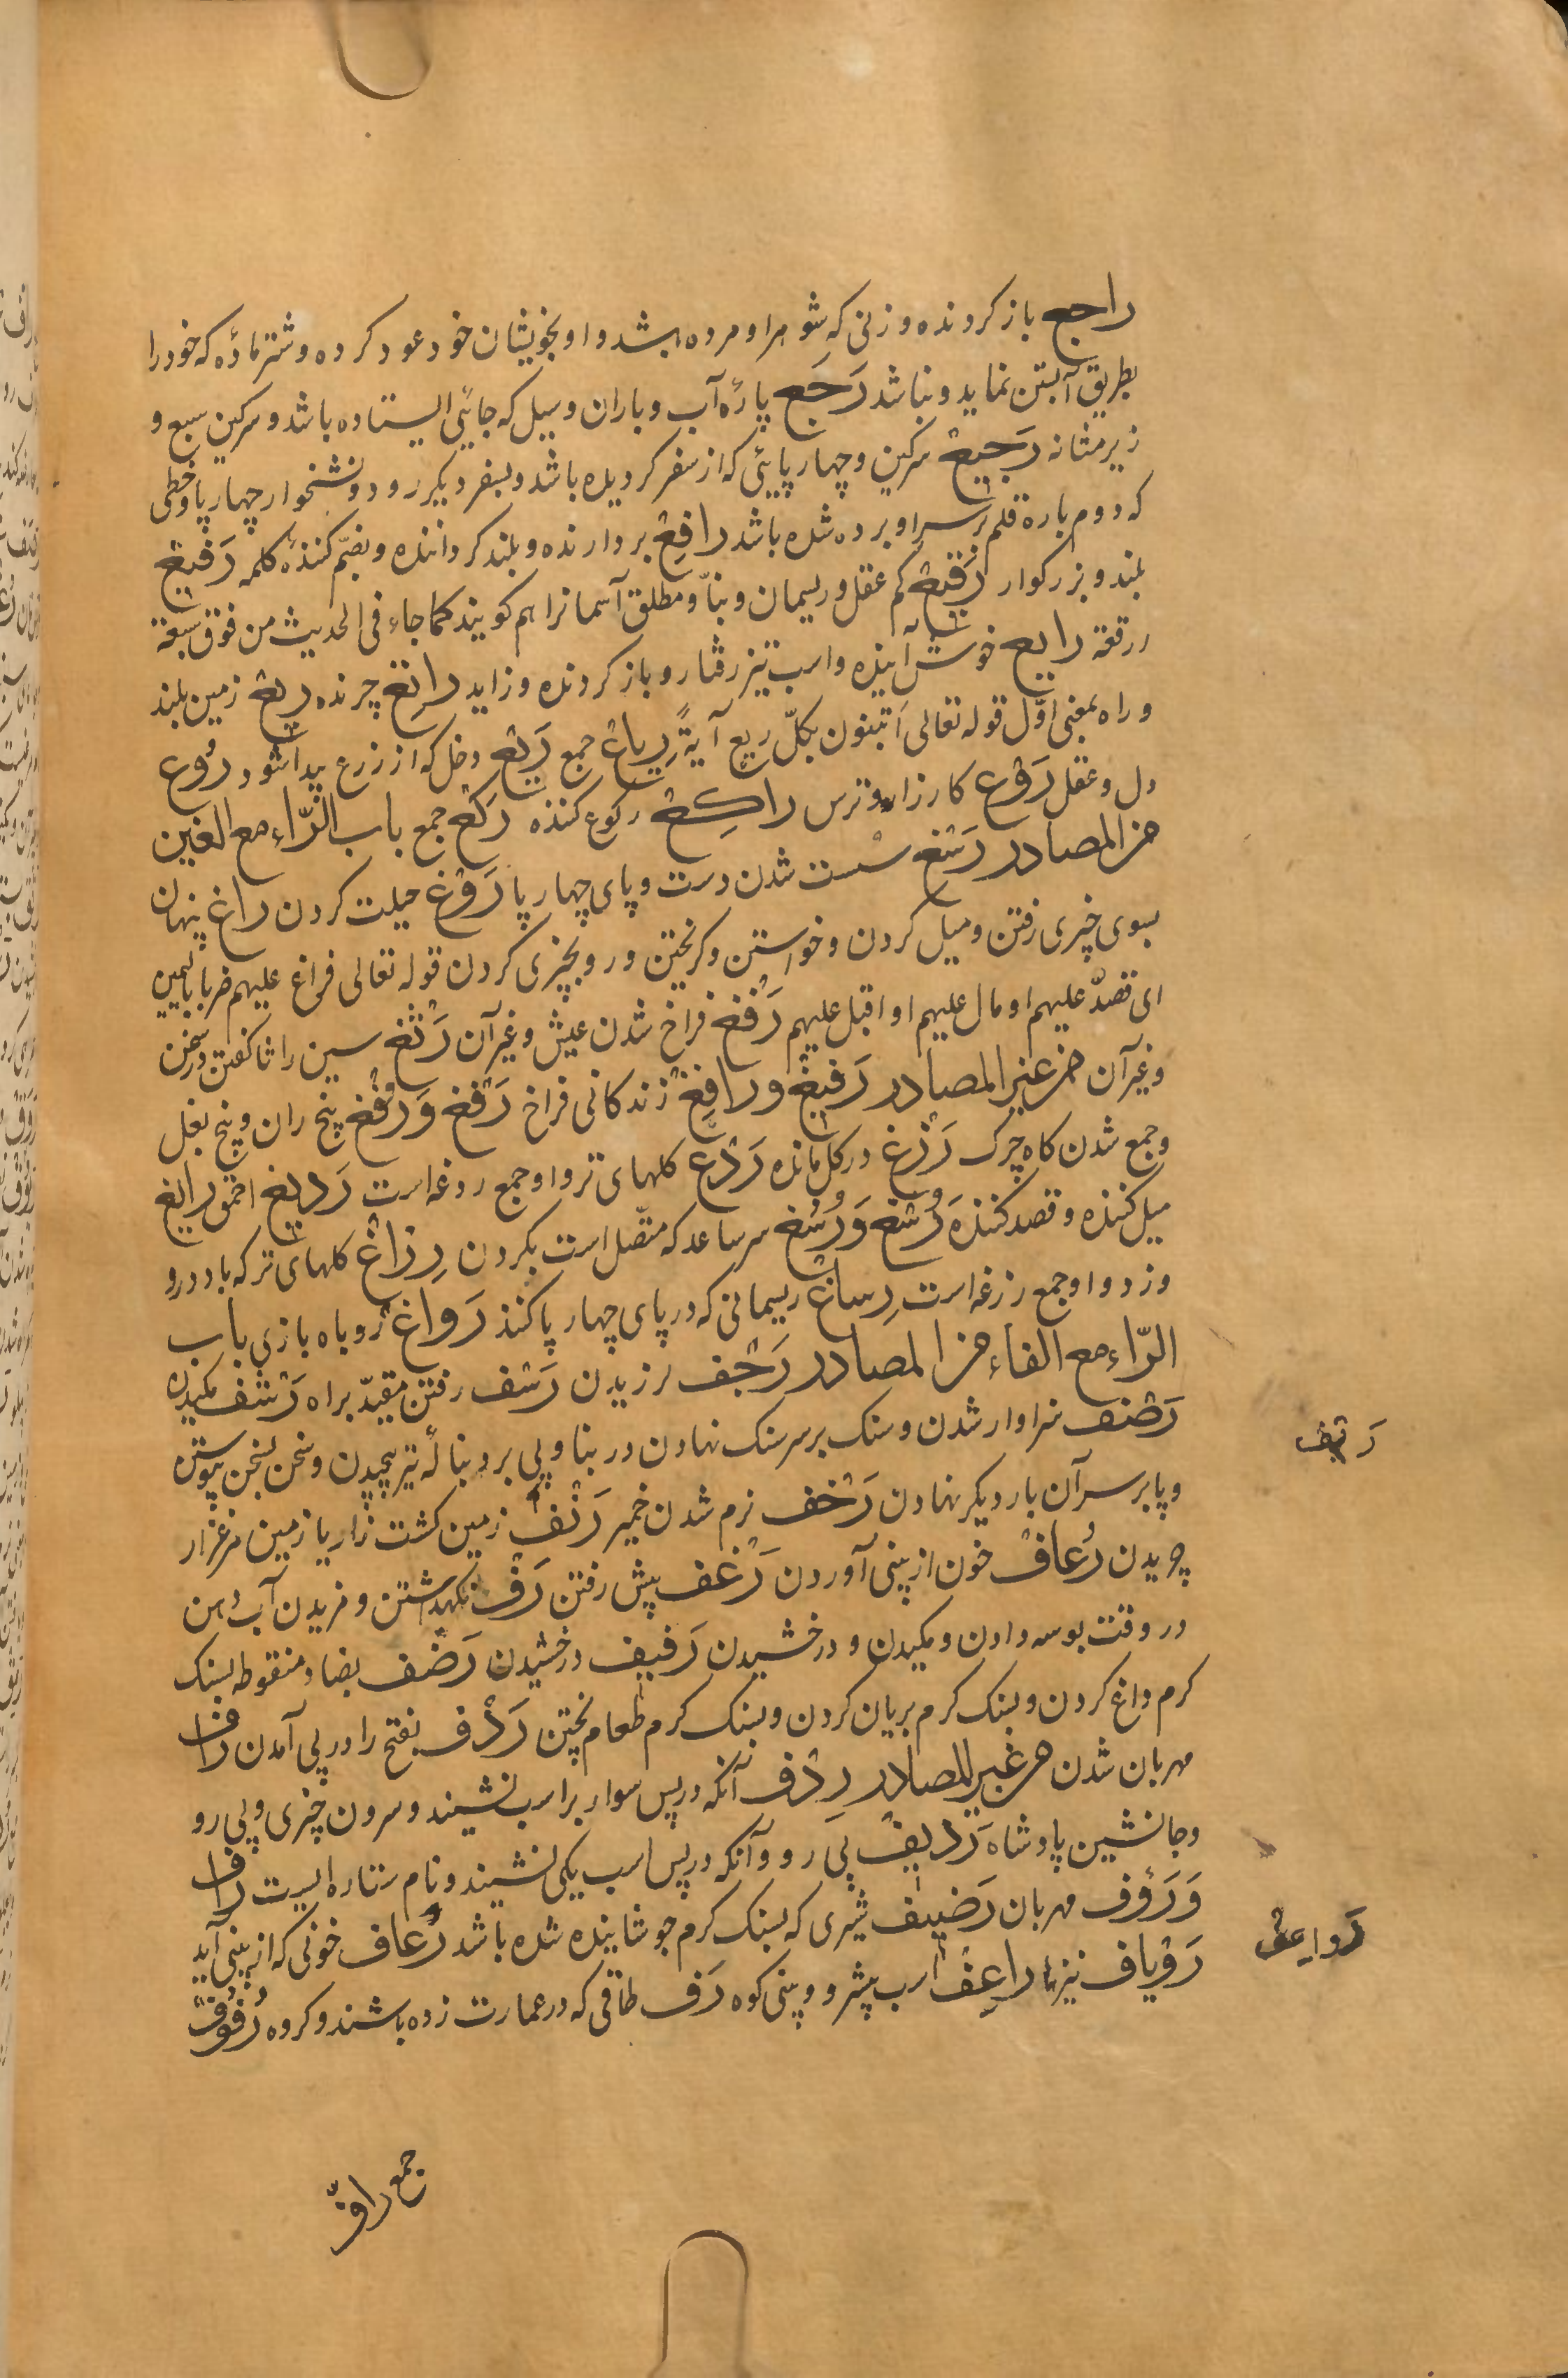 راجع باز کردونده و زنی که شوهر او مرده باشد و او بخویشان خود عود کرده و شتر مادّه که خود را
بطریق آبستن نماید و نباشد رَجَع پارهٔ آب و باران و سیل که جائی ایستاده باشد و سرکین سبع و
زیر مثانه رَجیع سرکین و چهارپایئی که از سفر کردیده باشد و بسفر دیکر رود و نشخوار چهارپا و خطی
که دوم باره قلم بر سر او برده شده باشد رافِع بردارنده و بلند کرداننده و بضم کنندهٔ کلمه رَفیع
بلند و بزرکوار رَقیع کم عقل و ریسمان و بنا و مطلق آسمانرا هم کویند کما جاء فی الحدیث من فوق سبعة
ررقعة رایع خوش آینده و اسب تیز رفتار و باز کردونده و زاید راتِع چرنده رِیع زمین بلند
و راه بمعنی اوّل قوله تعالی اَتبنون بکلّ ریعٍ آیةً رِیاع جمع رَیع دخل که از زرع پیدا شود رُوع
دل و عقل رَوْع کارزار و ترس راکِع رکوع کننده رُکّع جمع باب الرّاء مع الغین
من المصادر رَسَغ سست شدن دست و پای چهارپا رَوْغ حیلت کردن راغ پنهان
بسوی چیزی رفتن و میل کردن و خواستن و کریختن و رو بچیزی کردن قوله تعالی فراغ علیهم ضربا بالیمین
ای قصد علیهم او مال علیهم او اقبل علیهم رَفْغ فراخ شدن عیش و غیر آن رَثَغ سین را ثا کفتن در سخن
و غیر آن من غیر المصادر رَفیغ و رافِغ زندکانی فراخ رَفغ وَ رُفغ بیخ ران و بیخ بغل
و جمع شدن کاه چرک رَزِغ در کل مانده رَدْغ کلهای تر و او جمع ردغه است رَدیغ احمق رایغ
میل کننده و قصد کننده رُسْغ وَ رُسُغ سر ساعد که متّصل است بکردن رِزاغ کلهای تر که باد درو
وزد و او جمع رزغه است رِساغ ریسمانی که در پای چهارپا کنند رَواغ روباه بازی باب
الرّاء مع الفاء من المصادر رَجْف لرزیدن رَسْف رفتن مقیّد براه رَشْف مکیدن
رَصْف سزاوار شدن و سنک بر سر سنک نهادن در بنا و پی بر دنبالهٔ تیر پیچیدن و سخن بسخن پیوستن
و پا بر سر آن بار دیکر نهادن رَخْف نرم شدن خمیر رَنف زمین کشت زار یا زمین مرغزار
چریدن رُعاف خون از بینی آوردن رَعْف پیش رفتن رَفّ نکهداشتن و مزیدن آب دهن
در وقت بوسه دادن و مکیدن و درخشیدن رَفیف درخشیدن رَضف بضاد منقوطه بسنک
کرم داغ کردن و بسنک کرم بریان کردن و بسنک کرم طعام پختن رَدْف بفتح را در پی آمدن راف
مهربان شدن من غیر المصادر رِدْف آنکه در پس سوار بر اسب نشیند و سرون چیزی و پی رو
و جانشین پادشاه رَدیف پی رو و آنکه در پس اسب یکی نشیند و نام ستاره ایست راف
وَ رَؤف مهربان رَضیف شیری که بسنک کرم جوشانیده شده باشد رُعاف خونی که از بینی آید
رَوْیاف نیزها راعِف اسب پیشرو و بینی کوه رَف طاقی که در عمارت زده باشند و کروه رُفوف
جمع رافّ
رَواعف